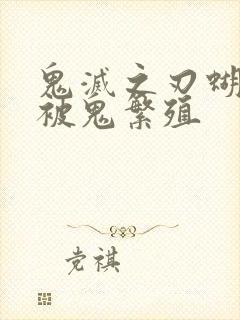 鬼滅之刃蝴
被鬼繁殖
党祺